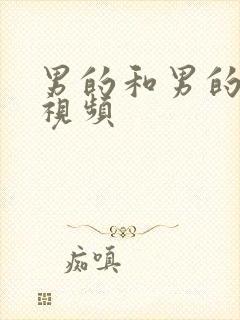 男的和男的
视頻
痴嗔